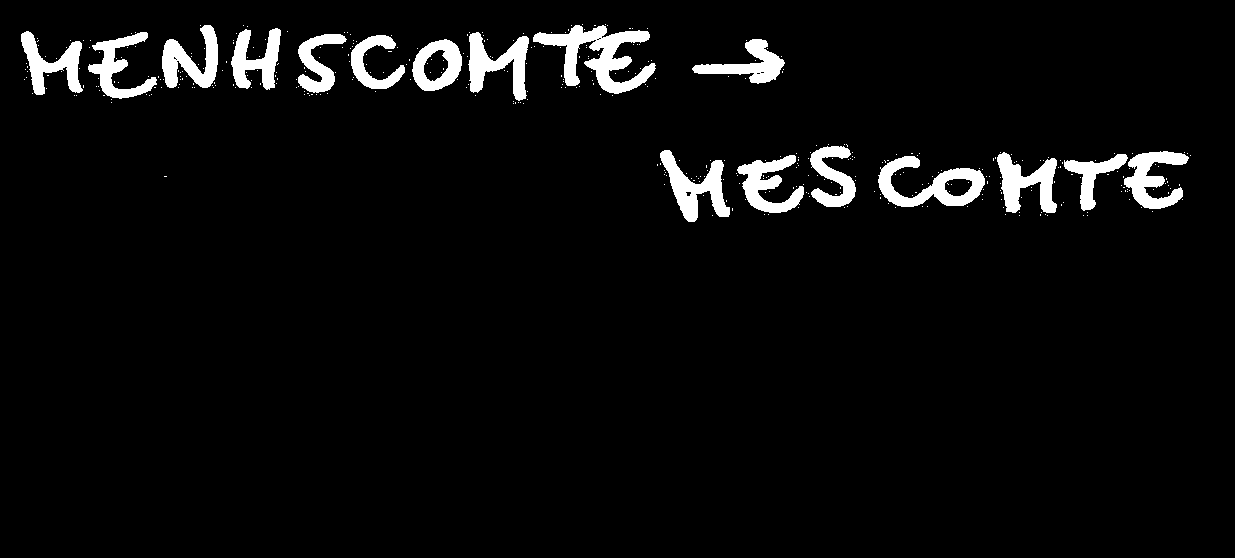 MENHSCOMTE →
MESCOMTE